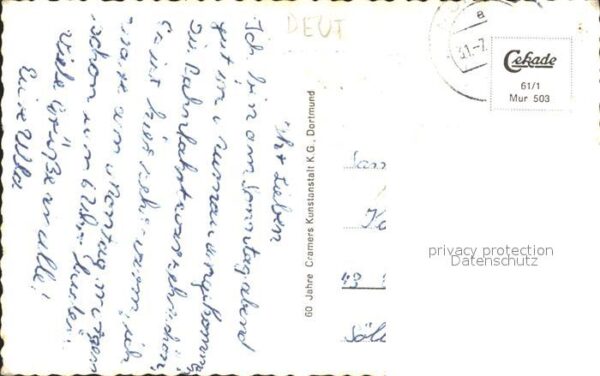 DEUT
31.-7.
Cekade
61/1
Mur 503
Ihr Lieben
Ich bin am Sonntag abend
gut in Murnau angekommen
Die Bahnfahrt war sehr schön,
Es ist hier sehr warm, ich
war am Montag morgen
schon um 6 Uhr
Viele Grüße an alle!
Eure
60 Jahre Cramers Kunstanstalt K.G., Dortmund
privacy protection
Datenschutz